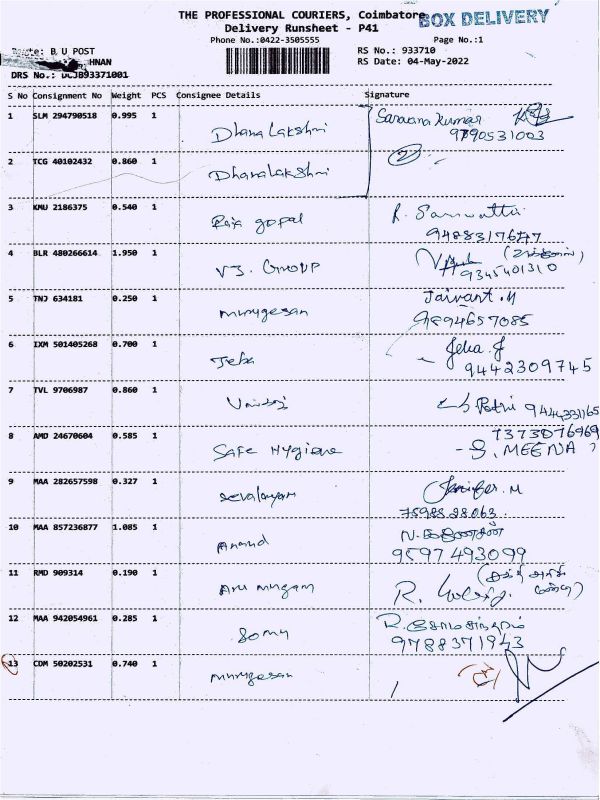 THE PROFESSIONAL COURIERS, Coimbatore
BOX DELIVERY
Delivery Runsheet - P41
Phone No.:0422-3505555 Page No.:1
B U POST RS No.: 933710
HNAN RS Date: 04-May-2022
DRS No.: DCJB93371001
S No Consignment No Weight PCS Consignee Details Signature
1 SLM 294790518 0.995 1 Dhanalakshmi Saravana Kumar
9790531003
2 TCG 40102432 0.860 1 Dhanalakshmi 2
3 KMU 2186375 0.540 1 Raja gopal
4 BLR 480266614 1.950 1 VJ. Group
9345401310
5 TNJ 634181 0.250 1 murugesan Jaivant.M
9894657085
6 IXM 501405268 0.700 1 Jeba Jeba.J
9442309745
7 TVL 9706987 0.860 1
8 AMD 24670604 0.585 1 Safe Hygiene 7373076969
- S. MEENA
9 MAA 282657598 0.327 1 sevalayam Jenifer. M
7598528063.
10 MAA 857236877 1.085 1 Anand
9597493099
11 RMD 909314 0.190 1 Aru mugam R.
12 MAA 942054961 0.285 1 Somu R. சோமசுந்தரம்
9788371943
13 CDM 50202531 0.740 1 murugesan